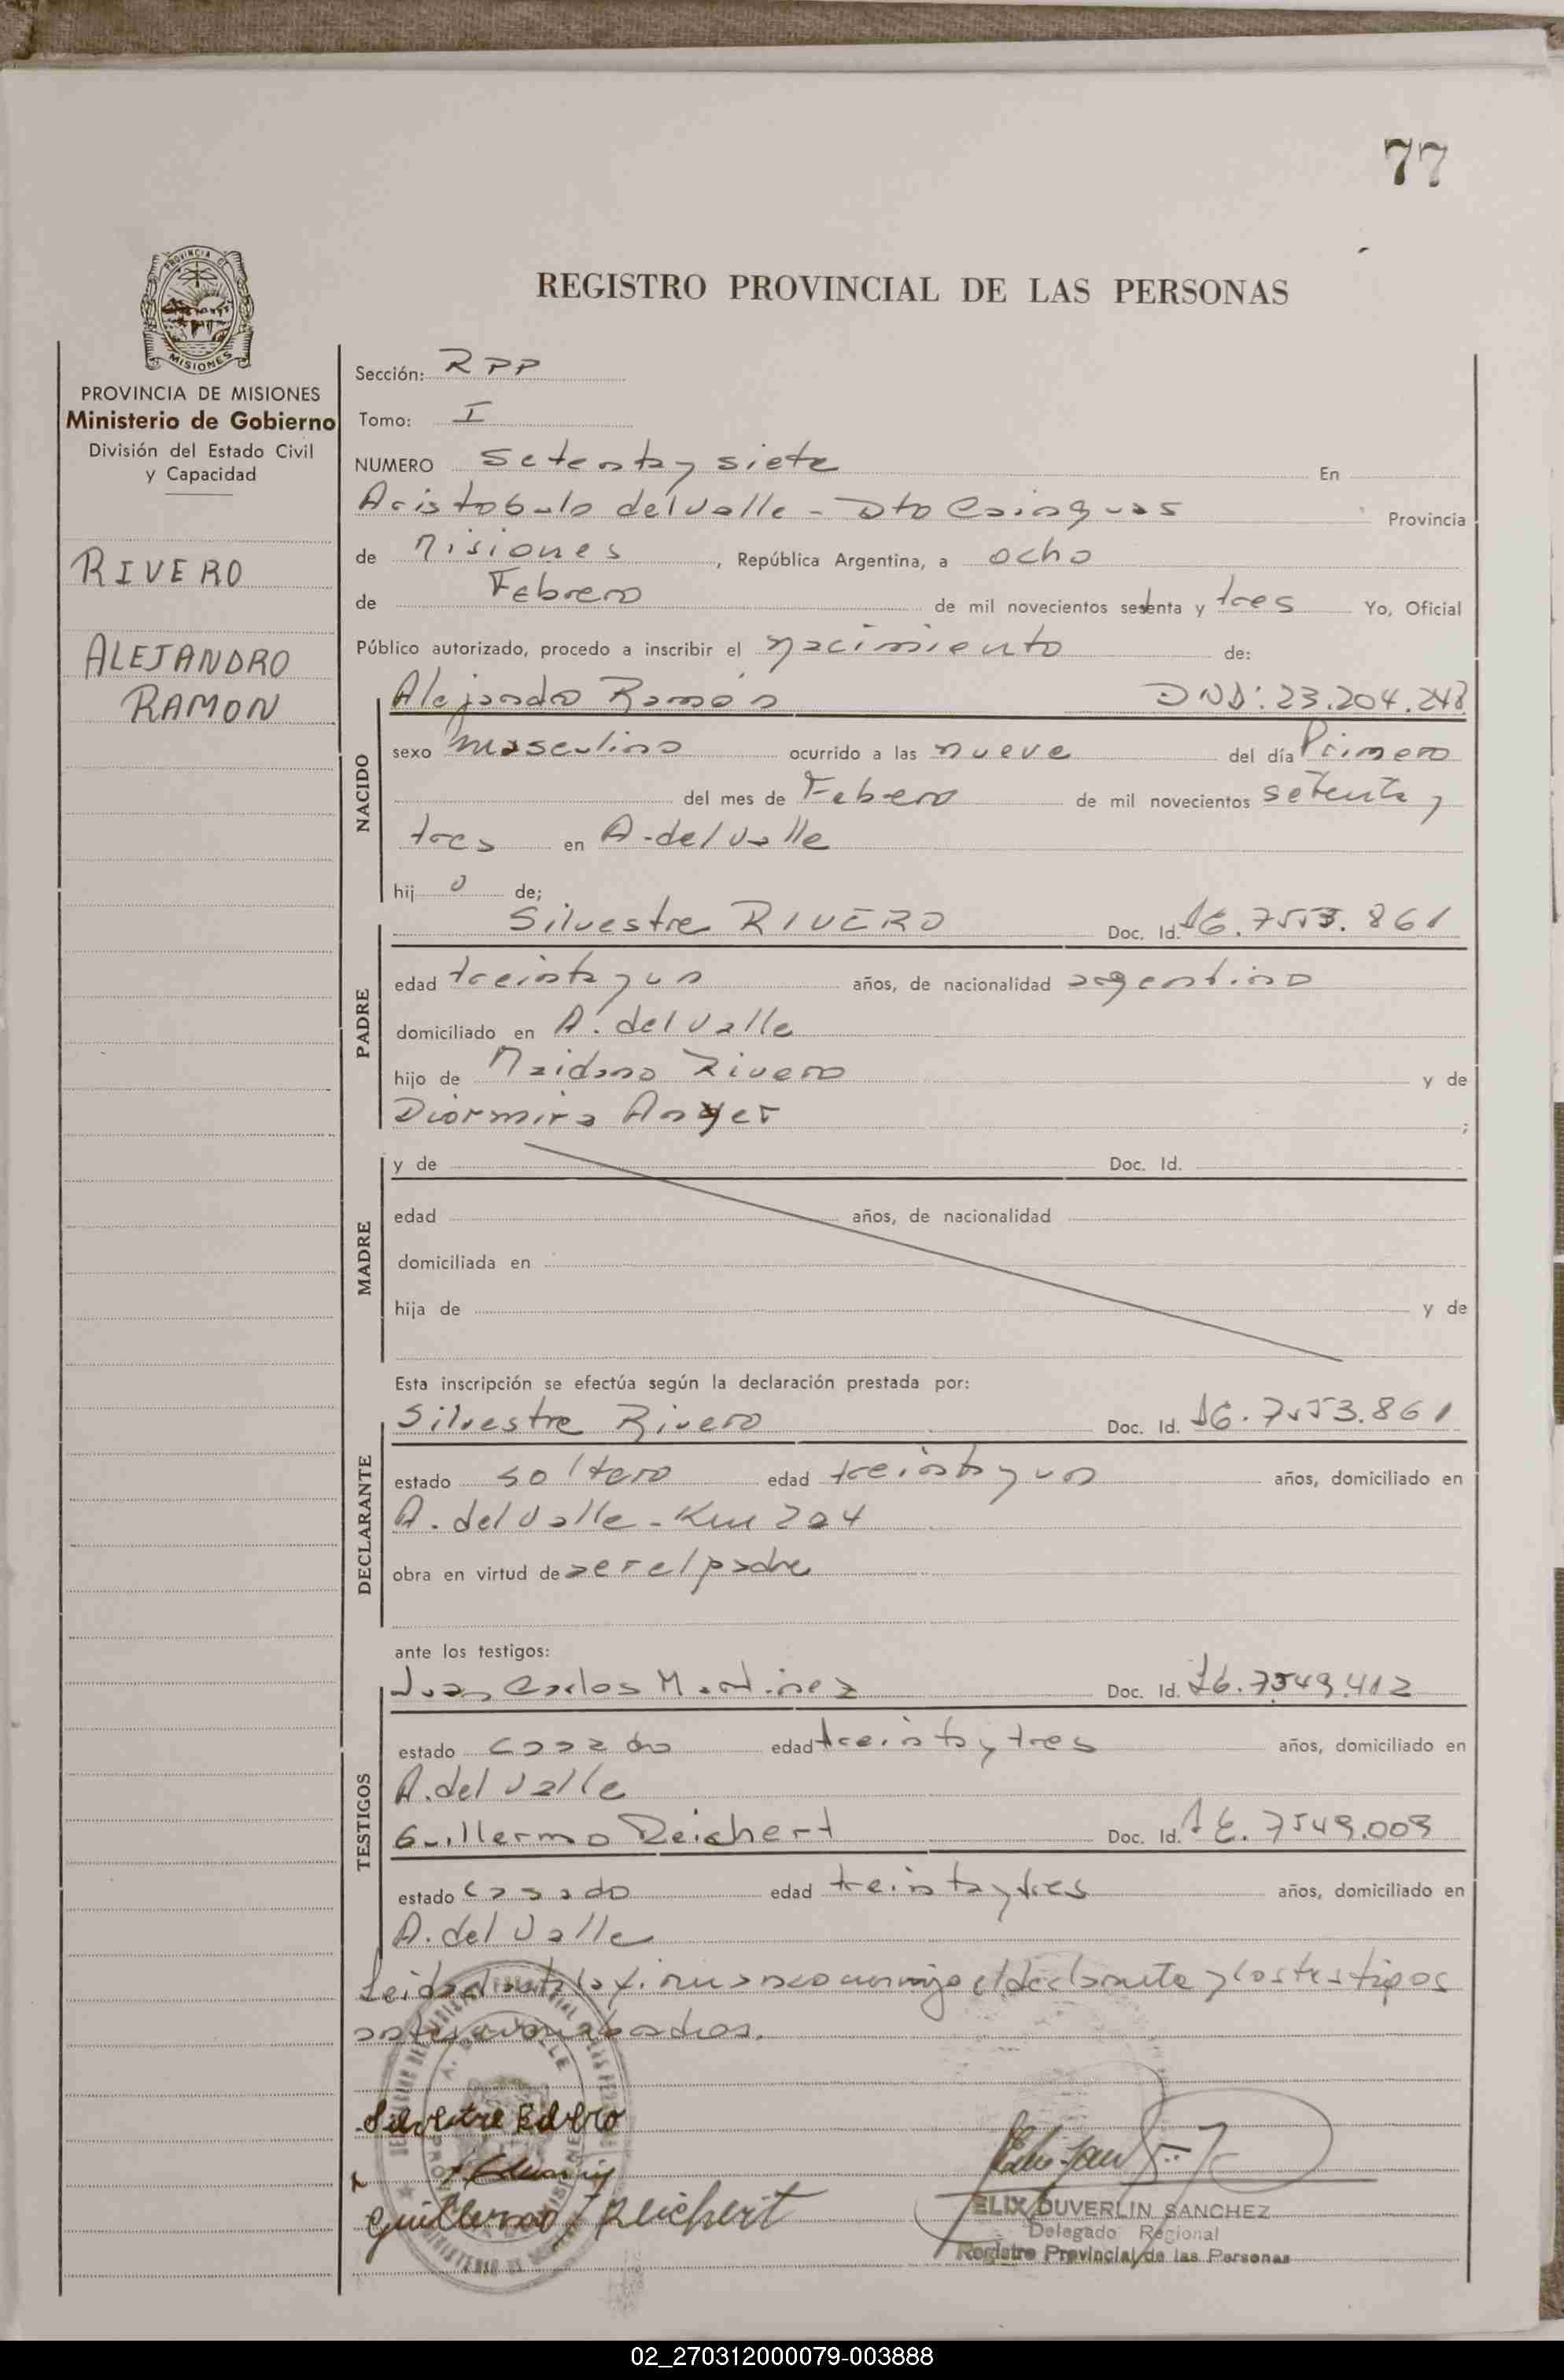 77
PROVINCIA DE
MISIONES
PROVINCIA DE MISIONES
Ministerio de Gobierno
División del Estado Civil
y Capacidad
RIVERO
ALEJANDRO
RAMON
REGISTRO PROVINCIAL DE LAS PERSONAS
Sección: RPP
Tomo: I
NUMERO setenta y siete En
Aristobulo del valle - Dto Cainguas Provincia
de Misiones, República Argentina, a ocho
de Febrero de mil novecientos setenta y tres Yo, Oficial
Público autorizado, procedo a inscribir el nacimiento de:
NACIDO
Alejandro Ramón DND: 23.204.248
sexo masculino ocurrido a las nueve del día Primero
del mes de Febero de mil novecientos setenta y
tres en A. del valle
hij o de;
PADRE
Silvestre RIVERO Doc. Id. 7553.861
edad treinta y un años, de nacionalidad argentino
domiciliado en A. del valle
hijo de Rivero y de
;
MADRE
y de Doc. Id.
edad años, de nacionalidad
domiciliada en
hija de y de
Esta inscripción se efectúa según la declaración prestada por:
DECLARANTE
Silvestre Rivero Doc. Id. 7553.861
estado soltero edad treinta y un años, domiciliado en
A. del valle - Km 204
obra en virtud de ser el padre
ante los testigos:
TESTIGOS
Juan Carlos Martinez Doc. Id. 7549.412
estado casado edad treinta y tres años, domiciliado en
A. del Valle
Guillermo Reichert Doc. Id. 7549.003
estado casado edad treinta y tres años, domiciliado en
A. del Valle
Leida el acta la firman conmigo el declarante y los testigos
Silvestre Rivero
Guillermo Reichert
ELIX DUVERLIN SANCHEZ
Delegado Regional
Registro Provincial de las Personas
02_270312000079-003888